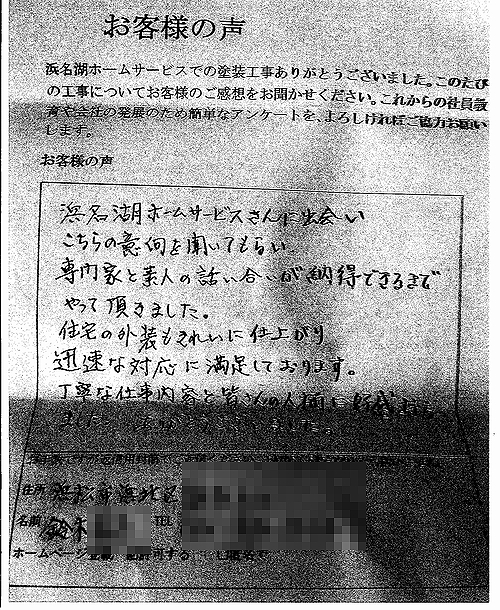 お客様の声
浜名湖ホームサービスでの塗装工事ありがとうございました。このたび
の工事についてお客様のご感想をお聞かせください。これからの社員教
育や会社の発展のため簡単なアンケートを、よろしければご協力お願い
します。
お客様の声
浜名湖ホームサービスさんに出会い
こちらの意向を聞いてもらい
専門家と素人の話い合いが納得できるまで
やって頂きました。
住宅の外装もきれいに仕上がり
迅速な対応に満足しております。
丁寧な仕事内容と皆さんの人柄に
ました。
住所 浜松市浜北区
名前 鈴木 TEL
ホームページ